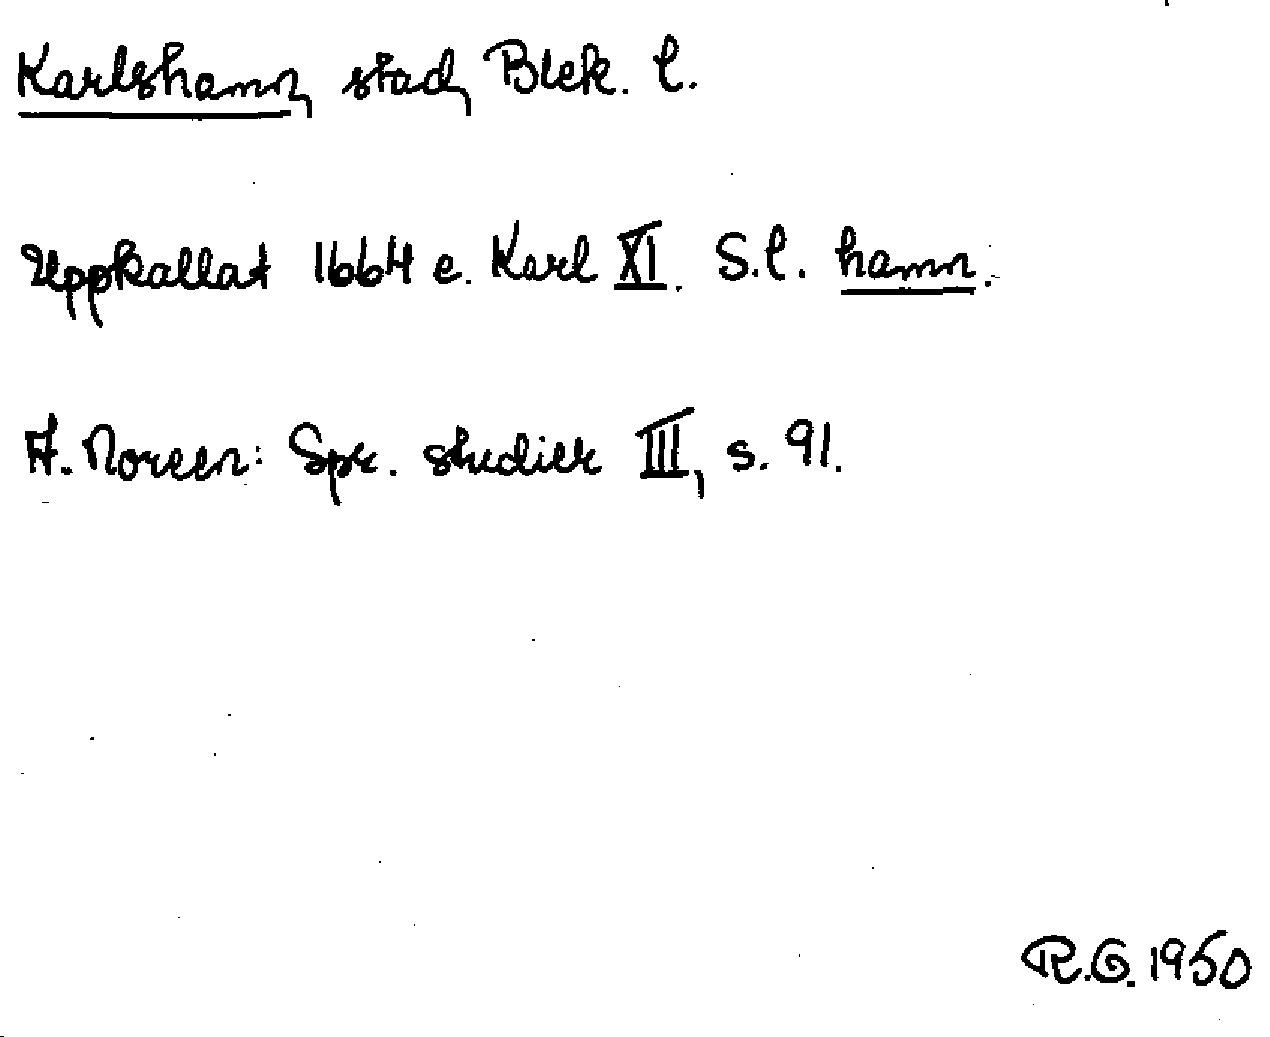 Karlshamn, stad, Blek. l.
Uppkallat 1664 e. Karl XI. S.l. hamn.
A. Noreen: Spr. studier III, s. 91.
R.G. 1950